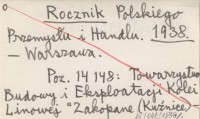 Rocznik Polskiego
Przemysłu i Handlu. 1938.
— Warszawa.
Poz. 14148: Towarzystwo
Budowy i Eksploatacji Kolei
Linowej "Zakopane (Kuźnice) —